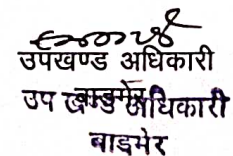 उपखण्ड अधिकारी
उप खण्ड अधिकारी
बाड़मेर